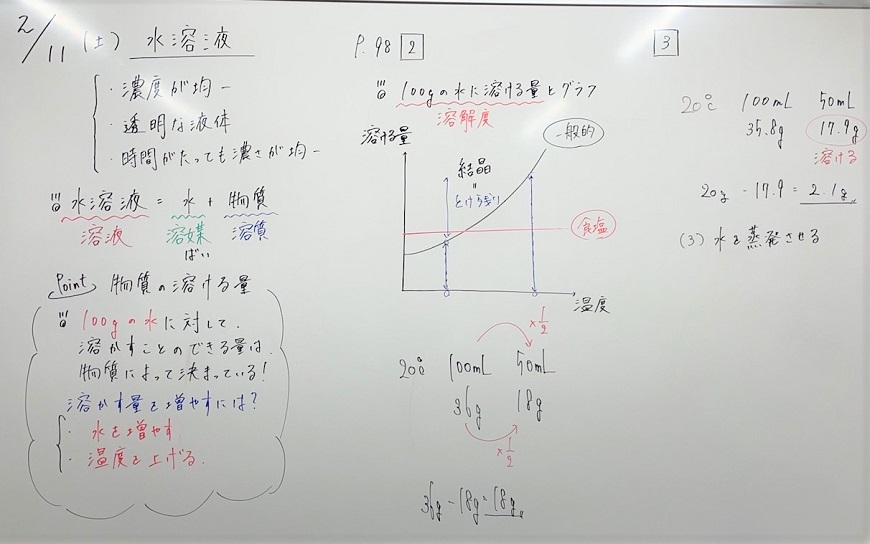 2/11(土) 水溶液
・濃度が均一
・透明な液体
・時間がたっても濃さが均一
水溶液 = 水 + 物質
溶液 溶媒 溶質
ばい
Point 物質の溶ける量
100gの水に対して、
溶かすことのできる量は
物質によって決まっている!
溶かす量を増やすには?
・水を増やす
・温度を上げる.
P.98 2
100gの水に溶ける量とグラフ
溶解度
溶ける量
一般的
結晶
=
とけのこり
食塩
温度
×1/2
20℃ 100mL 50mL
36g 18g
×1/2
36g-18g=18g
3
20℃ 100mL 50mL
35.8g 17.9g
溶ける
20g-17.9=2.1g
(3)水を蒸発させる